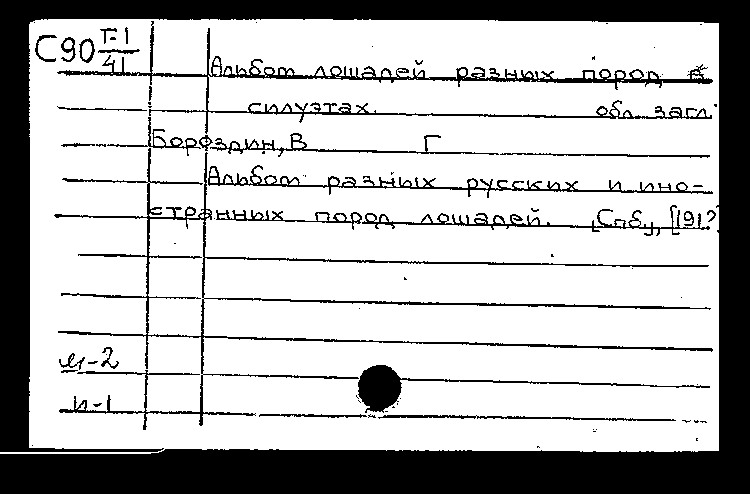 С90 Г-1/41
Альбом лошадей разных пород в
силуэтах. обл. загл.
Бороздин, В Г
Альбом разных русских и ино-
странных пород лошадей. [Спб], [191?
м-2
п-1